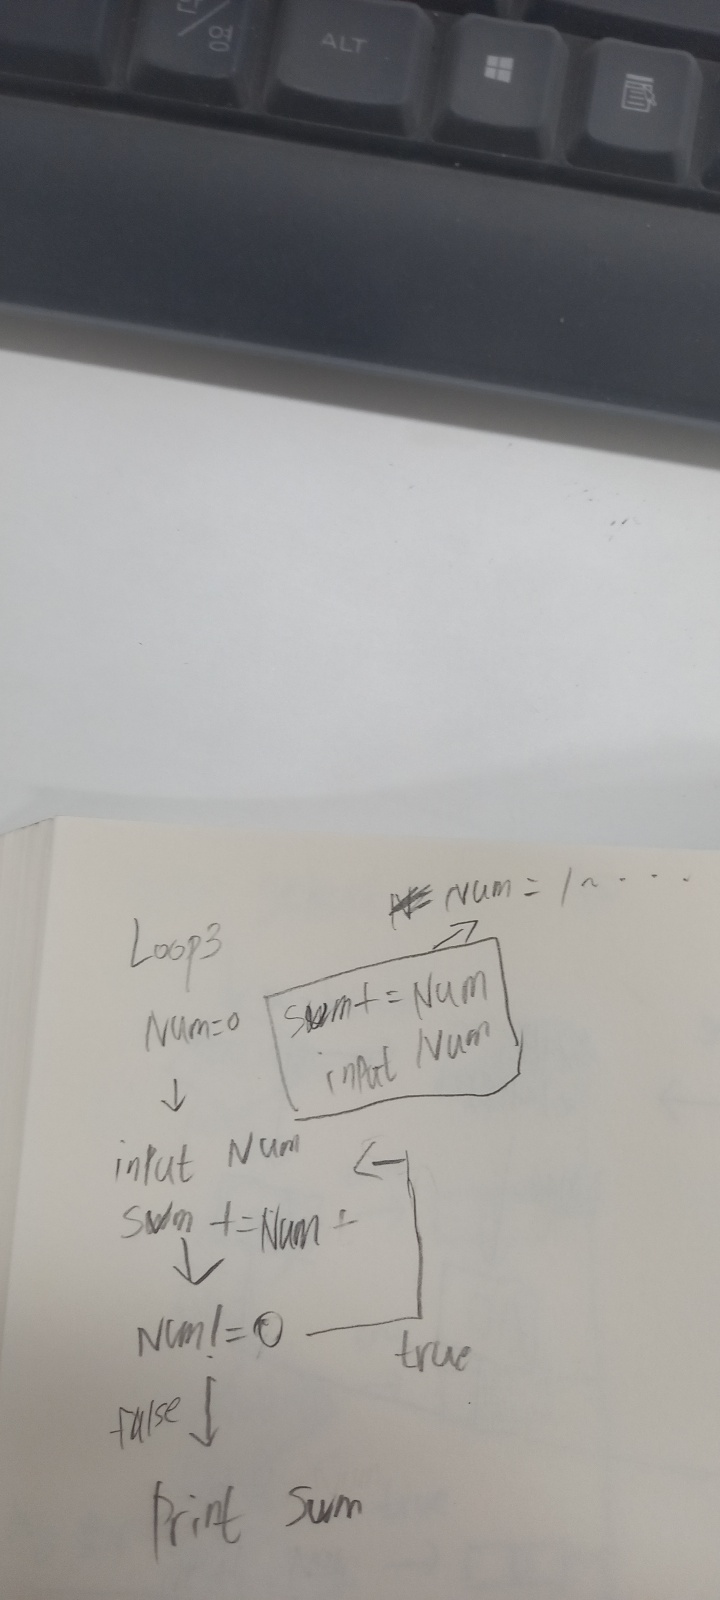 한/영
ALT
Num = 1 ~ · · ·
Loop3
Num=0
sum += Num
input Num
↓
input Num
sum += Num
↓
Num!=0
true
false ↓
print sum